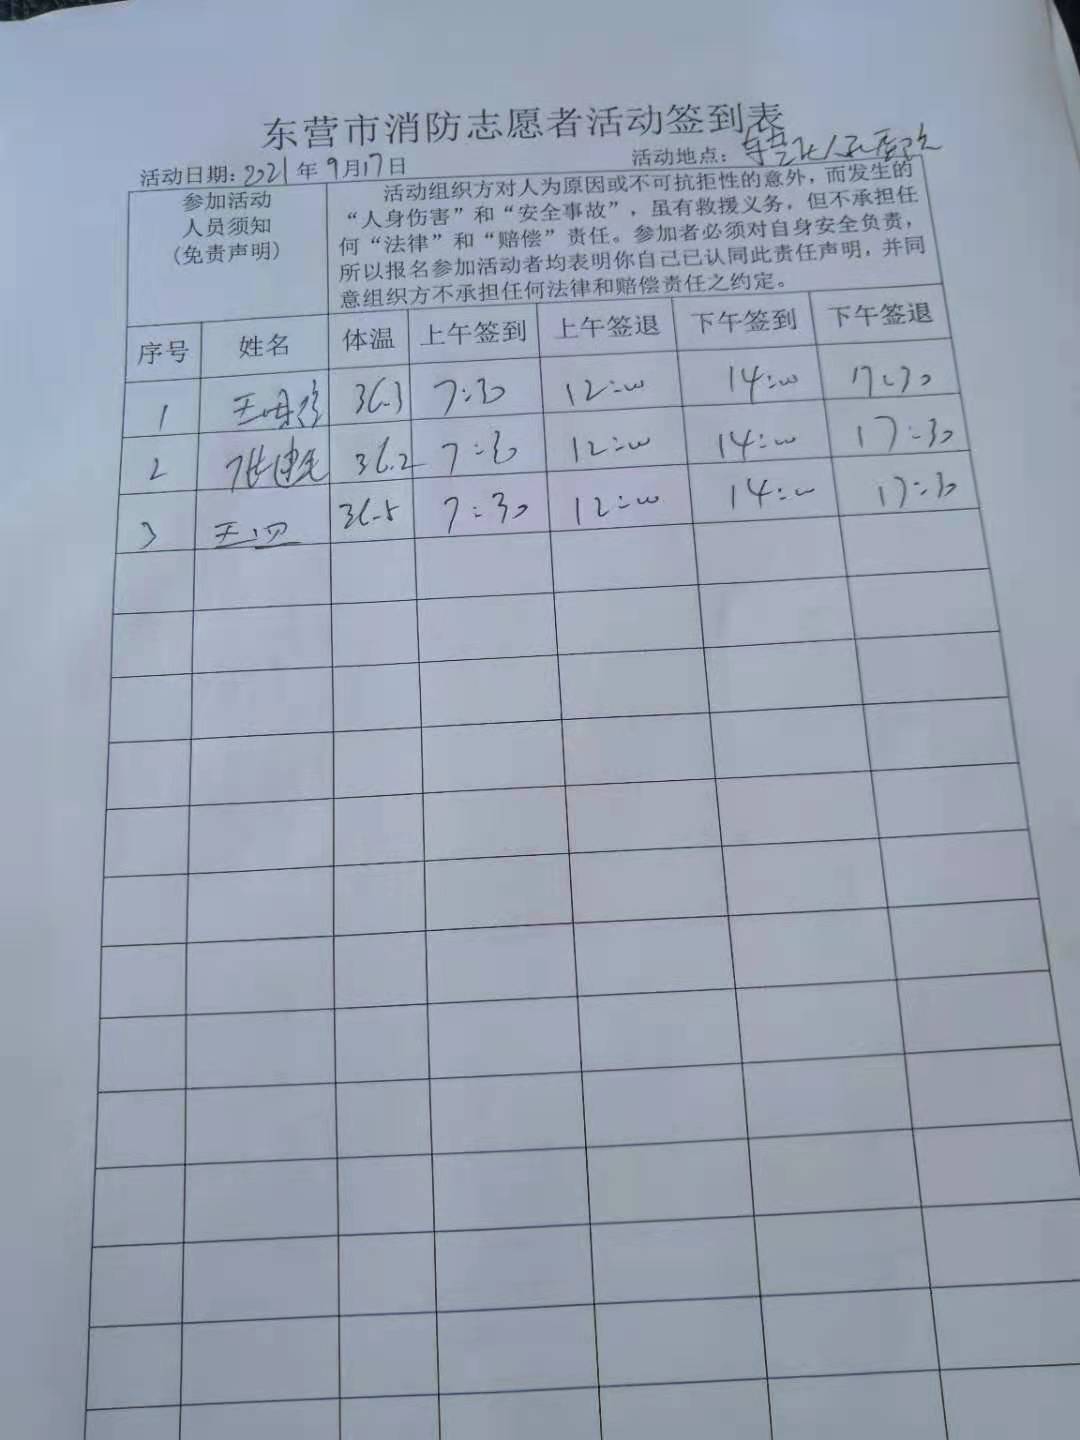 东营市消防志愿者活动签到表
活动日期：2021年9月17日 活动地点：
参加活动
人员须知
(免责声明)
活动组织方对人为原因或不可抗拒性的意外，而发生的
“人身伤害”和“安全事故”，虽有救援义务，但不承担任
何“法律”和“赔偿”责任。参加者必须对自身安全负责，
所以报名参加活动者均表明你自己已认同此责任声明，并同
意组织方不承担任何法律和赔偿责任之约定。
序号 姓名 体温 上午签到 上午签退 下午签到 下午签退
1 36.3 7:30 12:00 14:00 17:30
2 36.2 7:30 12:00 14:00 17:30
3 36.5 7:30 12:00 14:00 17:30